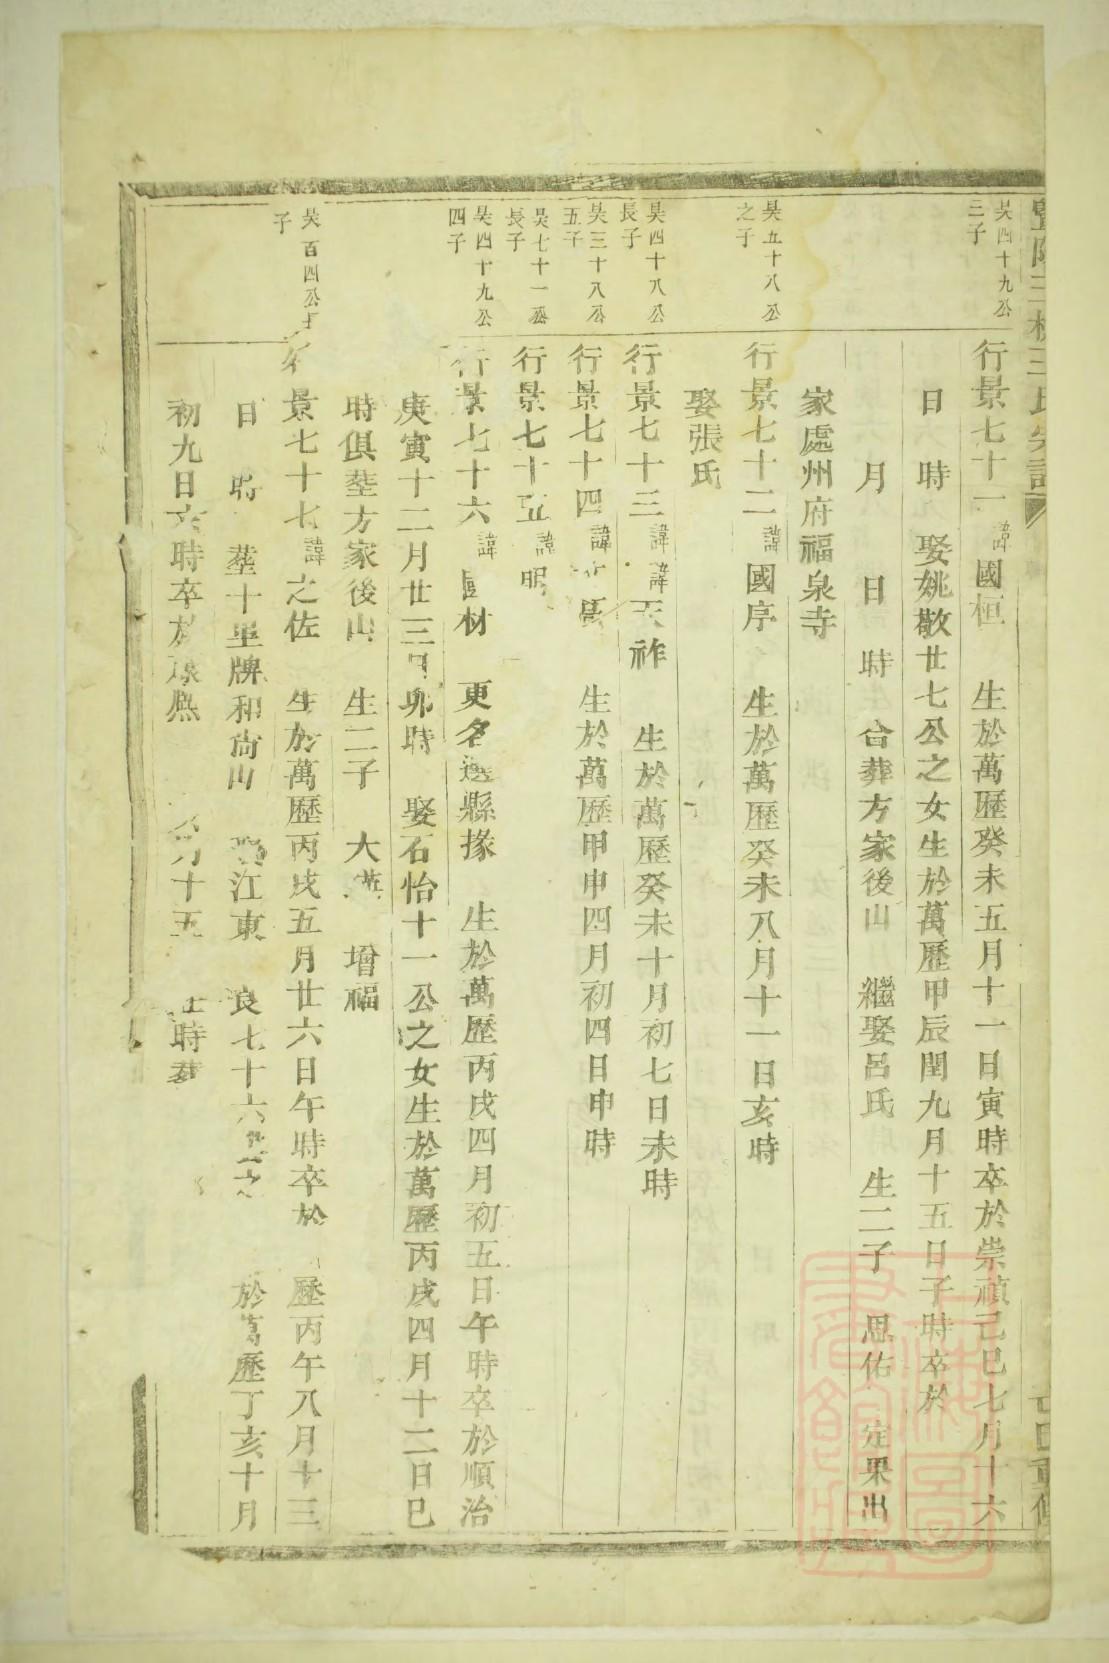 昊四十九公
三子
行景七十一 諱國桓 生於萬歷癸未五月十一日寅時卒於崇禎己巳七月十六
日 時 娶姚敬廿七公之女生於萬歷甲辰閏九月十五日子時卒於
月 日 時 合葬方家後山 繼娶呂氏 生二子 思佑 定果出
家處州府福泉寺
昊五十八公
之子
行景七十二 諱國序 生於萬歷癸未八月十一日亥時
娶張氏
昊四十八公
長子
行景七十三 諱 祚 生於萬歷癸未十月初七日未時
昊三十八公
五子
行景七十四 諱 生於萬歷甲申四月初四日申時
昊七十一公
長子
行景七十五 諱明
昊四十九公
四子
行景七十六 諱國材 更名 縣掾 生於萬歷丙戌四月初五日午時卒於順治
庚寅十二月廿三日卯時 娶石怡十一公之女生於萬歷丙戌四月十二日巳
時俱塟方家後山 生二子 大 增福
昊百四公
子
景七十七 諱之佐 生於萬歷丙戌五月廿六日午時卒於 歷丙午八月十三
日 時 塟十里牌和尚山 江東 良七十六 於萬歷丁亥十月
初九日亥時卒於 月十五 時葬